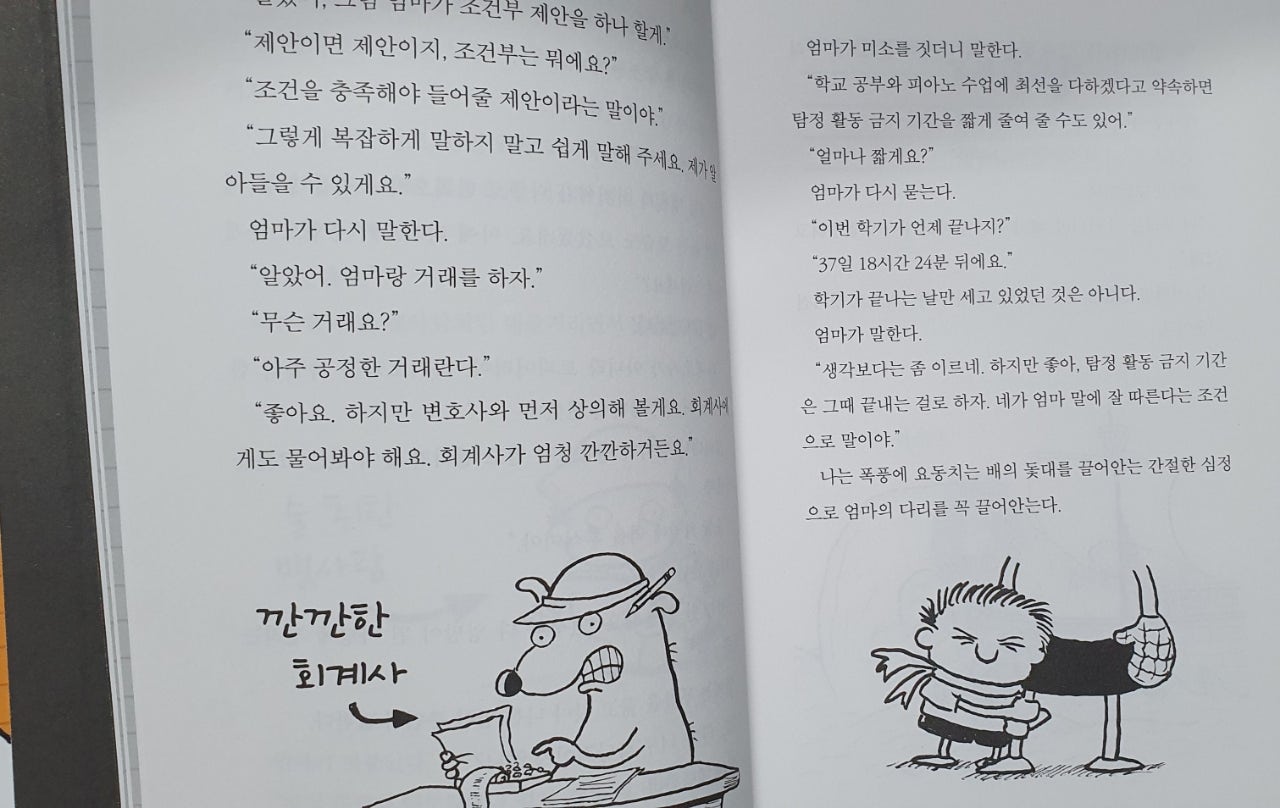 알았어, 그럼 엄마가 조건부 제안을 하나 할게.”
“제안이면 제안이지, 조건부는 뭐에요?”
“조건을 충족해야 들어줄 제안이라는 말이야.”
“그렇게 복잡하게 말하지 말고 쉽게 말해 주세요. 제가 알
아들을 수 있게요.”
엄마가 다시 말한다.
“알았어. 엄마랑 거래를 하자.”
“무슨 거래요?”
“아주 공정한 거래란다.”
“좋아요. 하지만 변호사와 먼저 상의해 볼게요. 회계사에
게도 물어봐야 해요. 회계사가 엄청 깐깐하거든요.”
깐깐한
회계사
엄마가 미소를 짓더니 말한다.
“학교 공부와 피아노 수업에 최선을 다하겠다고 약속하면
탐정 활동 금지 기간을 짧게 줄여 줄 수도 있어.”
“얼마나 짧게요?”
엄마가 다시 묻는다.
“이번 학기가 언제 끝나지?”
“37일 18시간 24분 뒤에요.”
학기가 끝나는 날만 세고 있었던 것은 아니다.
엄마가 말한다.
“생각보다는 좀 이르네. 하지만 좋아, 탐정 활동 금지 기간
은 그때 끝내는 걸로 하자. 네가 엄마 말에 잘 따른다는 조건
으로 말이야.”
나는 폭풍에 요동치는 배의 돛대를 끌어안는 간절한 심정
으로 엄마의 다리를 꼭 끌어안는다.